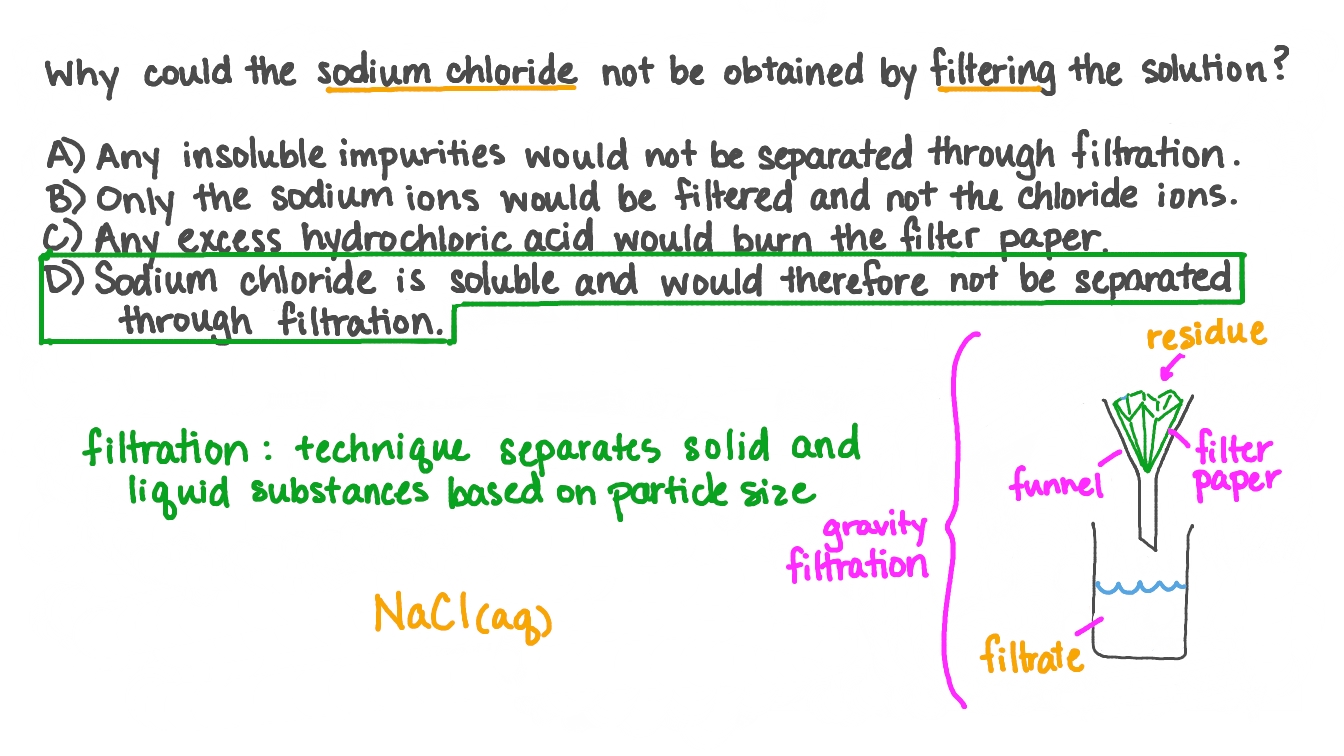 Why could the sodium chloride not be obtained by filtering the solution?
A) Any insoluble impurities would not be separated through filtration.
B) Only the sodium ions would be filtered and not the chloride ions.
C) Any excess hydrochloric acid would burn the filter paper.
D) Sodium chloride is soluble and would therefore not be separated
through filtration.
residue
filtration: technique separates solid and
liquid substances based on particle size
funnel
filter
paper
gravity
filtration
NaCl(aq)
filtrate